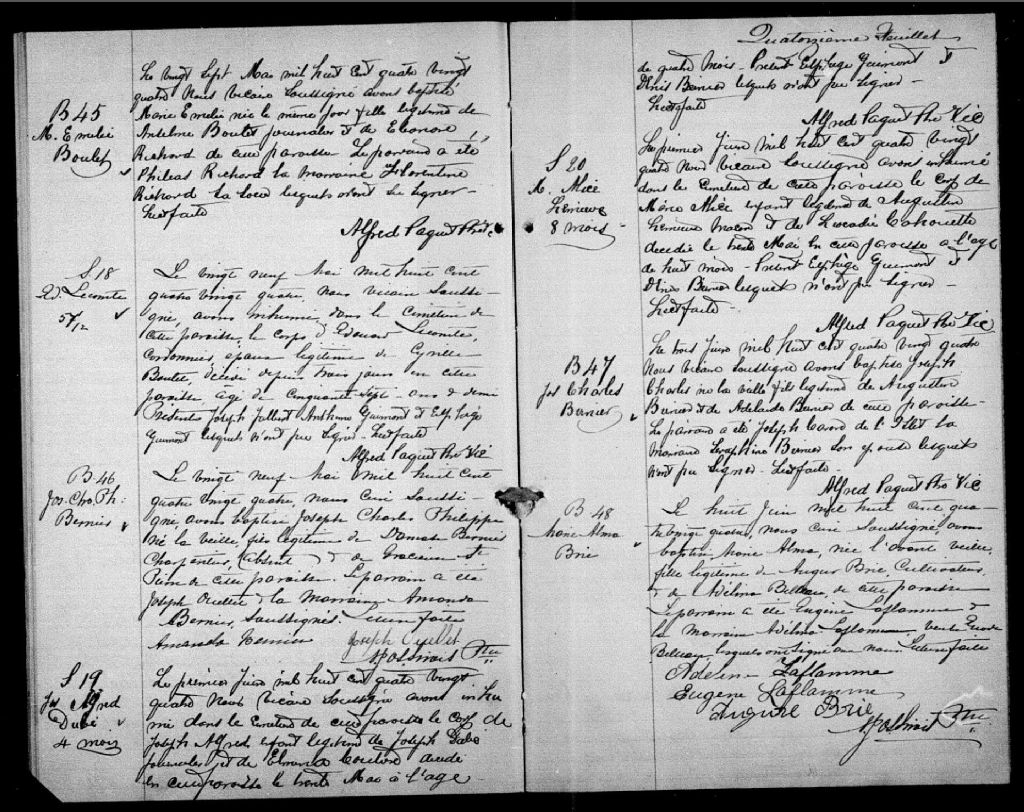 B 45
M. Emelie
Boulet
Le vingt Sept Mai mil huit cent quatre vingt
quatre Nous vicaire Soussigné avons baptisé
Marie Emelie née le même jour fille légitime de
Anselme Boulet journalier et de Eleonore
Richard de cette paroisse. Le parrain a été
Phileas Richard la marraine Florentine
Richard
Lectfaite
Alfred Paquet Ptre
S 18
Ed. Lecomte
57/12
Le vingt neuf Mai mil huit cent
quatre vingt quatre, nous vicaire Soussi-
gné, avons inhumé dans le Cimetière de
cette paroisse, le corps d'Edouard Lecomte,
Cordonnier, epoux légitime de Cyrille
Boulet, décédé depuis trois jours en cette
paroisse agé de cinquante sept ans & demi
Présents Joseph Anthime Guimont et Elphège
Guimont lesquels n'ont pu Signer. Lectfaite
Alfred Paquet Ptre Vic
B 46
Jos. Chs. Ph.
Bernier
Le vingt neuf Mai mil huit cent
quatre vingt quatre, nous Curé Soussi-
gné, avons baptisé Joseph Charles Philippe
né la veille, fils légitime de Damase Bernier
Charpentier, (absent) & de Gracieuse St
Pierre de cette paroisse. Le parrain a été
Joseph Ouellet & la Marraine Amanda
Bernier, Soussignés. Lecture faite
Amanda Bernier Joseph Ouellet
Ptre
S 19
Jos Alfred
Dubé
4 mois
Le premier Juin mil huit cent quatre vingt
quatre Nous Vicaire Soussigné avons inhu
mé dans le Cimetière de cette paroisse le corps de
Joseph Alfred, enfant légitime de Joseph Dubé
journalier et de Couture décédé
en cette paroisse le trente Mai à l'age
Quatorzième Feuillet
de quatre mois - Présent Elphège Guimont et
Denis Bernier lesquels n'ont pu signer -
Lectfaite
Alfred Paquet Ptre Vic
S 20
M. Alice
Lemieux
8 mois
Le premier Juin mil huit cent quatre vingt
quatre Nous vicaire Soussigné avons inhumé
dans le Cimetière de cette paroisse le corps de
Marie Alice enfant légitime de Augustin
Lemieux Maçon et de Leocadie Cahouette
décédée le trente Mai en cette paroisse a l'age
de huit mois - Présent Elphège Guimont et
Denis Bernier lesquels n'ont pu signer -
Lectfaite -
Alfred Paquet Ptre Vic
B 47
Jos Charles
Bernier
Le trois Juin mil huit cent quatre vingt quatre
Nous Vicaire Soussigné avons baptisé Joseph
Charles né la veille fils légitime de Augustin
Bernier et de Adelaide Bernier de cette paroisse -
Le parrain a été Joseph Caron de l'Islet la
Marraine Seraphine Bernier son epouse lesquels
n'ont pu Signer - Lectfaite -
Alfred Paquet Ptre Vic
B 48
Marie Alma
Brie
Le huit Juin mil huit cent qua-
tre vingt quatre, nous curé Soussigné, avons
baptisé Marie Alma, née l'avant veille,
fille légitime de Brie, Cultivateur,
& de Adélina de cette paroisse
Le parrain a été Eugène Laflamme &
la Marraine Laflamme,
lesquels ont signé avec nous. Lecture faite
Laflamme
Eugène Laflamme
Brie
Ptre